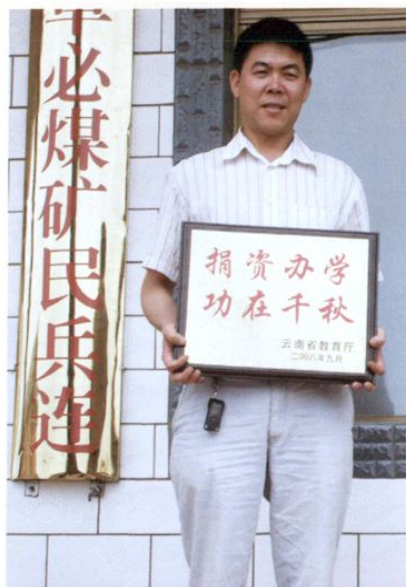 必煤矿民兵连
捐资办学
功在千秋
云南省教育厅
二〇〇八年九月